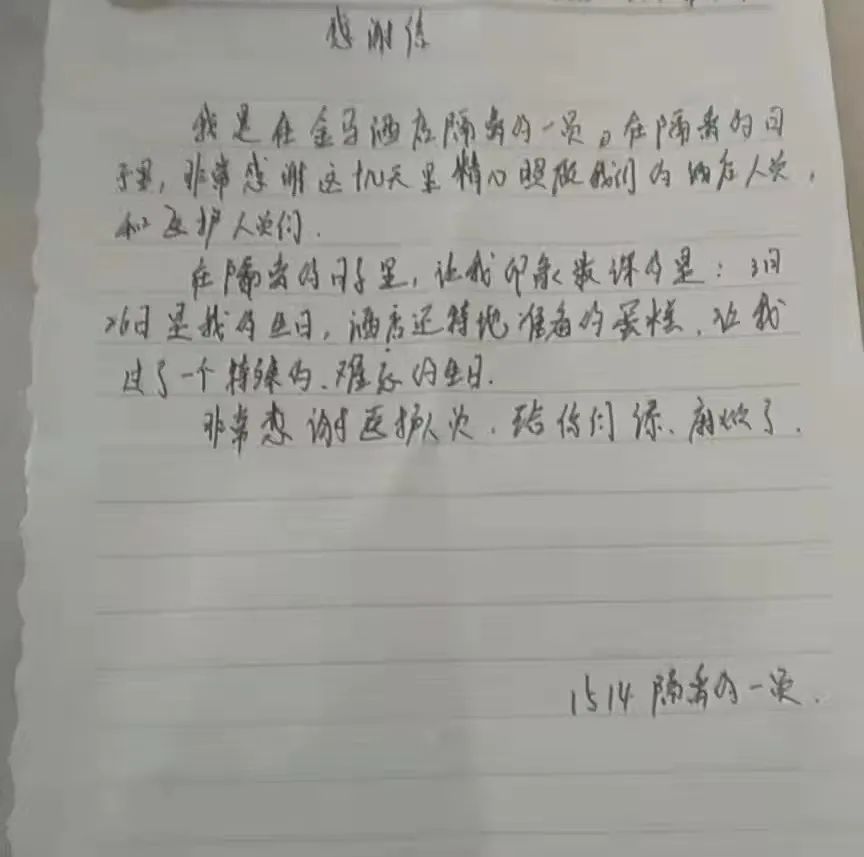 感谢信
我是在金马酒店隔离的一员。在隔离的日
子里，非常感谢这几天里精心照顾我们的酒店人员，
和医护人员们.
在隔离的日子里，让我印象最深的是：3月
26日是我的生日，酒店还特地准备的蛋糕、让我
过了一个特殊的、难忘的生日.
非常感谢医护人员．给你们添、麻烦了．
1514 隔离的一员．